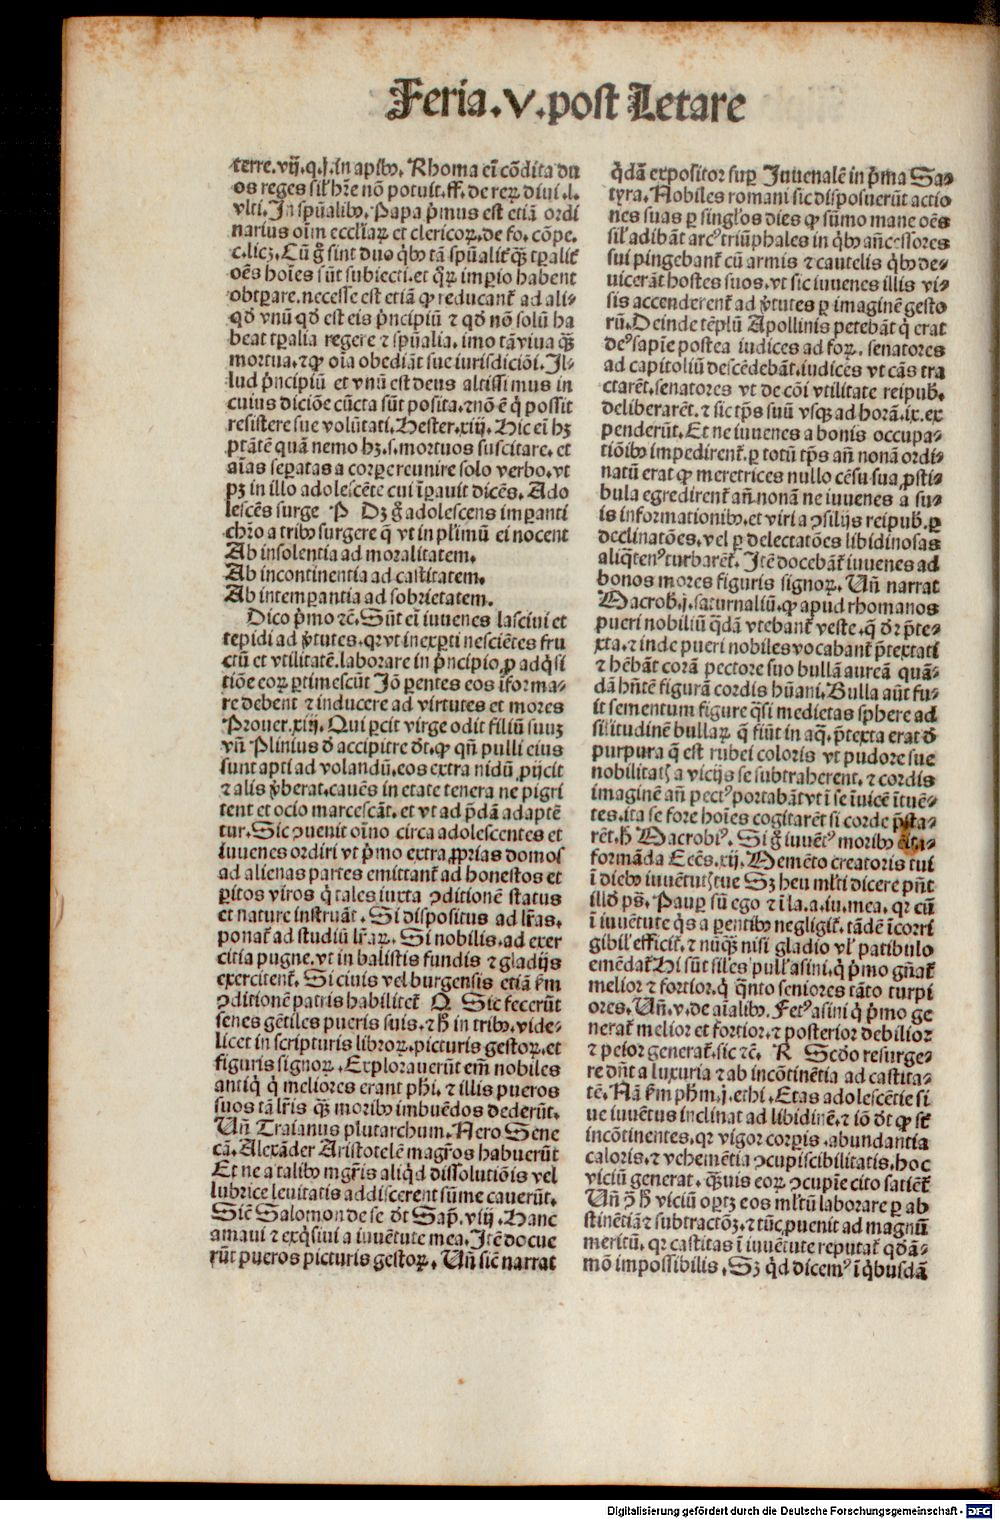 Feria.V.post Letare
terre.vij.q.j.in apibꝰ. Rhoma eī cōdita du
os reges sil' hr̄e nō potuit.ff.de reꝝ diui.l.
vlti. In sp̄ualibꝰ. Papa pͥmus est etiā ordi
narius oīm eccl'iaꝝ et clericoꝝ.de fo.cōpe.
c.licꝫ. Cū gͦ sint duo qͥbꝰ tā sp̄ualit̄ qꝫ tꝑalit̄
oēs hoīes sūt subiecti.et qͦꝝ imꝑio habent
obtꝑare.necesse est etiā ꝙ reducant̄ ad ali-
qd̄ vnū qd̄ est eis pͥncipiū ⁊ qd̄ nō solū ha
beat tꝑalia regere ⁊ sp̄ualia. imo tā viua qꝫ
mortua.⁊ ꝙ oīa obediāt sue iurisdiciōi. Il-
lud pͥncipiū et vnū est deus altissimus in
cuius diciōe cūcta sūt posita.⁊ nō ē qͥ possit
resistere sue volūtati. Hester.xiij. Hic eī hꝫ
ptāte̅ quā nemo hꝫ.s.mortuos suscitare.et
aīas seꝑatas a corꝑe reunire solo verbo.vt
pꝫ in illo adolescēte cui īꝑauit dicēs. Ado
lescēs surge P Dꝫ gͦ adolescens imꝑanti
chr̄o a tribꝰ surgere q̄ vt in pl'imū ei nocent
Ab insolentia ad moralitatem.
Ab incontinentia ad castitatem.
Ab intemꝑantia ad sobrietatem.
Dico pͥmo ⁊c̄. Sūt eī iuuenes lasciui et
tepidi ad v̓tutes.qꝛ vt inexꝑti nesciētes fru
ctū et vtilitatē.laborare in pͥncipio ꝓ adqͥsi
tiōe eoꝝ ꝑtimescūt Iō ꝑentes eos īforma-
re debent ⁊ inducere ad virtutes et mores
Prouer.xiij. Qui ꝑcit virge odit filiū suuꝫ
vn̄ Plinius d̄ accipitre d̄t.ꝙ qn̄ pulli eius
sunt apti ad volandū.eos extra nidū ꝓijcit
⁊ alis v̓berat.cauēs in etate tenera ne pigri
tent et ocio marcescāt.et vt ad p̄dā adaptē
tur. Sic ꝯuenit oīno circa adolescentes et
iuuenes ordiri vt pͥmo extra ꝓprias domos
ad alienas partes emittant̄ ad honestos et
ꝑitos viros qͥ tales iuxta ꝯditionē status
et nature instruāt. Si dispositus ad lr̄as.
ponat̄ ad studiū lr̄aꝝ. Si nobilis.ad exer
citia pugne.vt in balistis fundis ⁊ gladijs
exercitent̄. Si ciuis vel burgensis etiā ẜm
ꝯditionē patris habilitet̄ Q Sic fecerūt
senes gētiles pueris suis.⁊ h̄ in tribꝰ.vide-
licet in scripturis libroꝝ.picturis gestoꝝ.et
figuris signoꝝ. Explorauerūt em̄ nobiles
antiqͥ qͥ meliores erant ph̄i.⁊ illis pueros
suos tā lr̄is qꝫ moribꝰ imbuēdos dederūt.
Un̄ Traianus plutarchum. Nero Sene
cā. Alexāder Aristotelē magr̄os habuerūt
Et ne a talibꝰ mgr̄is aliqͥd dissolutiōis vel
lubrice leuitatis addiscerent sūme cauerūt.
Sic̄ Salomon de se d̄t Sap̄.viij. Hanc
amaui ⁊ exqͥsiui a iuuētute mea. Itē docue
rūt pueros picturis gestoꝝ. Un̄ sic̄ narrat
qͥdā expositor suꝑ Iuuenalē in pͥma Sa-
tyra. Nobiles romani sic disposuerūt actio
nes suas ꝑ singl'os dies ꝙ sūmo mane oēs
sil' adibāt arcꝰ triūphales in qͥbꝰ an̄cessores
sui pingebant̄ cū armis ⁊ cautelis qͥbꝰ de-
uicerāt hostes suos.vt sic iuuenes illis vi-
sis accenderent̄ ad v̓tutes ꝑ imaginē gesto
rū. Deinde tēplū Apollinis petebāt qͥ erat
deꝰ sapīe postea iudices ad foꝝ. senatores
ad capitoliū descēdebāt.iudices vt cās tra
ctarēt.senatores vt de cōi vtilitate reipub̄.
deliberarēt.⁊ sic tp̄s suū vsqꝫ ad horā.ix.ex
penderūt. Et ne iuuenes a bonis occupa-
tiōibꝰ impedirent̄.ꝑ totū tp̄s an̄ nonā ordi-
natū erat ꝙ meretrices nullo cēsu sua ꝓsti-
bula egredirent̄ an̄ nonā ne iuuenes a su-
is informationibꝰ.et viri a ꝯsilijs reipub̄.ꝑ
declinatōes.vel ꝑ delectatōes libidinosas
aliqͣtenꝰ turbarēt̄. Itē docebāt̄ iuuenes ad
bonos mores figuris signoꝝ. Un̄ narrat
Macrob̄.j.saturnaliū.ꝙ apud rhomanos
pueri nobiliū qͣdā vtebant̄ veste.q̄ dr̄ p̄te-
xta.⁊ inde pueri nobiles vocabant̄ p̄textati
⁊ hēbāt corā pectore suo bullā aureā quā-
dā hn̄tē figurā cordis hūani. Bulla aūt fu-
it sementum figure qͣsi medietas sphere ad
sil'itudinē bullaꝝ q̄ fiūt in aq̄. p̄texta erat d̄
purpura q̄ est rubei coloris vt pudore sue
nobilitatꝭ a vicijs se subtraherent.⁊ cordis
imaginē an̄ pectꝰ portabāt vt ī se īuicē ītuē-
tes.ita se fore hoīes cogitarēt si corde p̄sta-
rēt.h̄ Macrobiꝰ. Si gͦ iuuētꝰ moribꝰ
formāda Ecēs.xij. Memēto creatoris tui
ī diebꝰ iuuētutꝭ tue Sꝫ heu ml'ti dicere pn̄t
illd̄ ps̄. Pauꝑ sū ego ⁊ ī la.a.iu.mea. qꝛ cū
ī iuuētute qͥs a ꝑentibꝰ negligit̄.tādē īcorri
gibil' efficit̄.⁊ nūqꝫ nisi gladio vl' patibulo
emēdat̄ Hi sūt sil'es pull' asini.qͥ pͥmo gn̄at̄
melior ⁊ fortior.qͥ qͣnto seniores tāto turpi
ores. Un̄.v.de aīalibꝰ. Fetꝰ asini qͥ pͥmo ge
nerat̄ melior et fortior.⁊ posterior debilior
⁊ peior generat̄.sic ⁊c̄. R Scd̄o resurge-
re dn̄t a luxuria ⁊ ab incōtinētia ad castita-
tē. Nā ẜm ph̄m.j.ethi. Etas adolescētie si
ue iuuētus inclinat ad libidinē.⁊ iō d̄t ꝙ st̄
incōtinentes.qꝛ vigor corꝑis .abundantia
caloris.⁊ vehemētia ꝯcupiscibilitatis.hoc
viciū generat. qꝫuis eoꝝ ꝯcupīe cito satiēt̄
Un̄ ꝯ h̄ viciū oꝑtꝫ eos ml'tū laborare ꝑ ab
stinētiā ⁊ subtractōꝫ.⁊ tūc ꝓuenit ad magnū
meritū. qꝛ castitas ī iuuētute reputat̄ qd̄ā-
mō impossibilis. Sꝫ qͥd dicemꝰ ī qͥbusdā
Digitalisierung gefördert durch die Deutsche Forschungsgemeinschaft - DFG